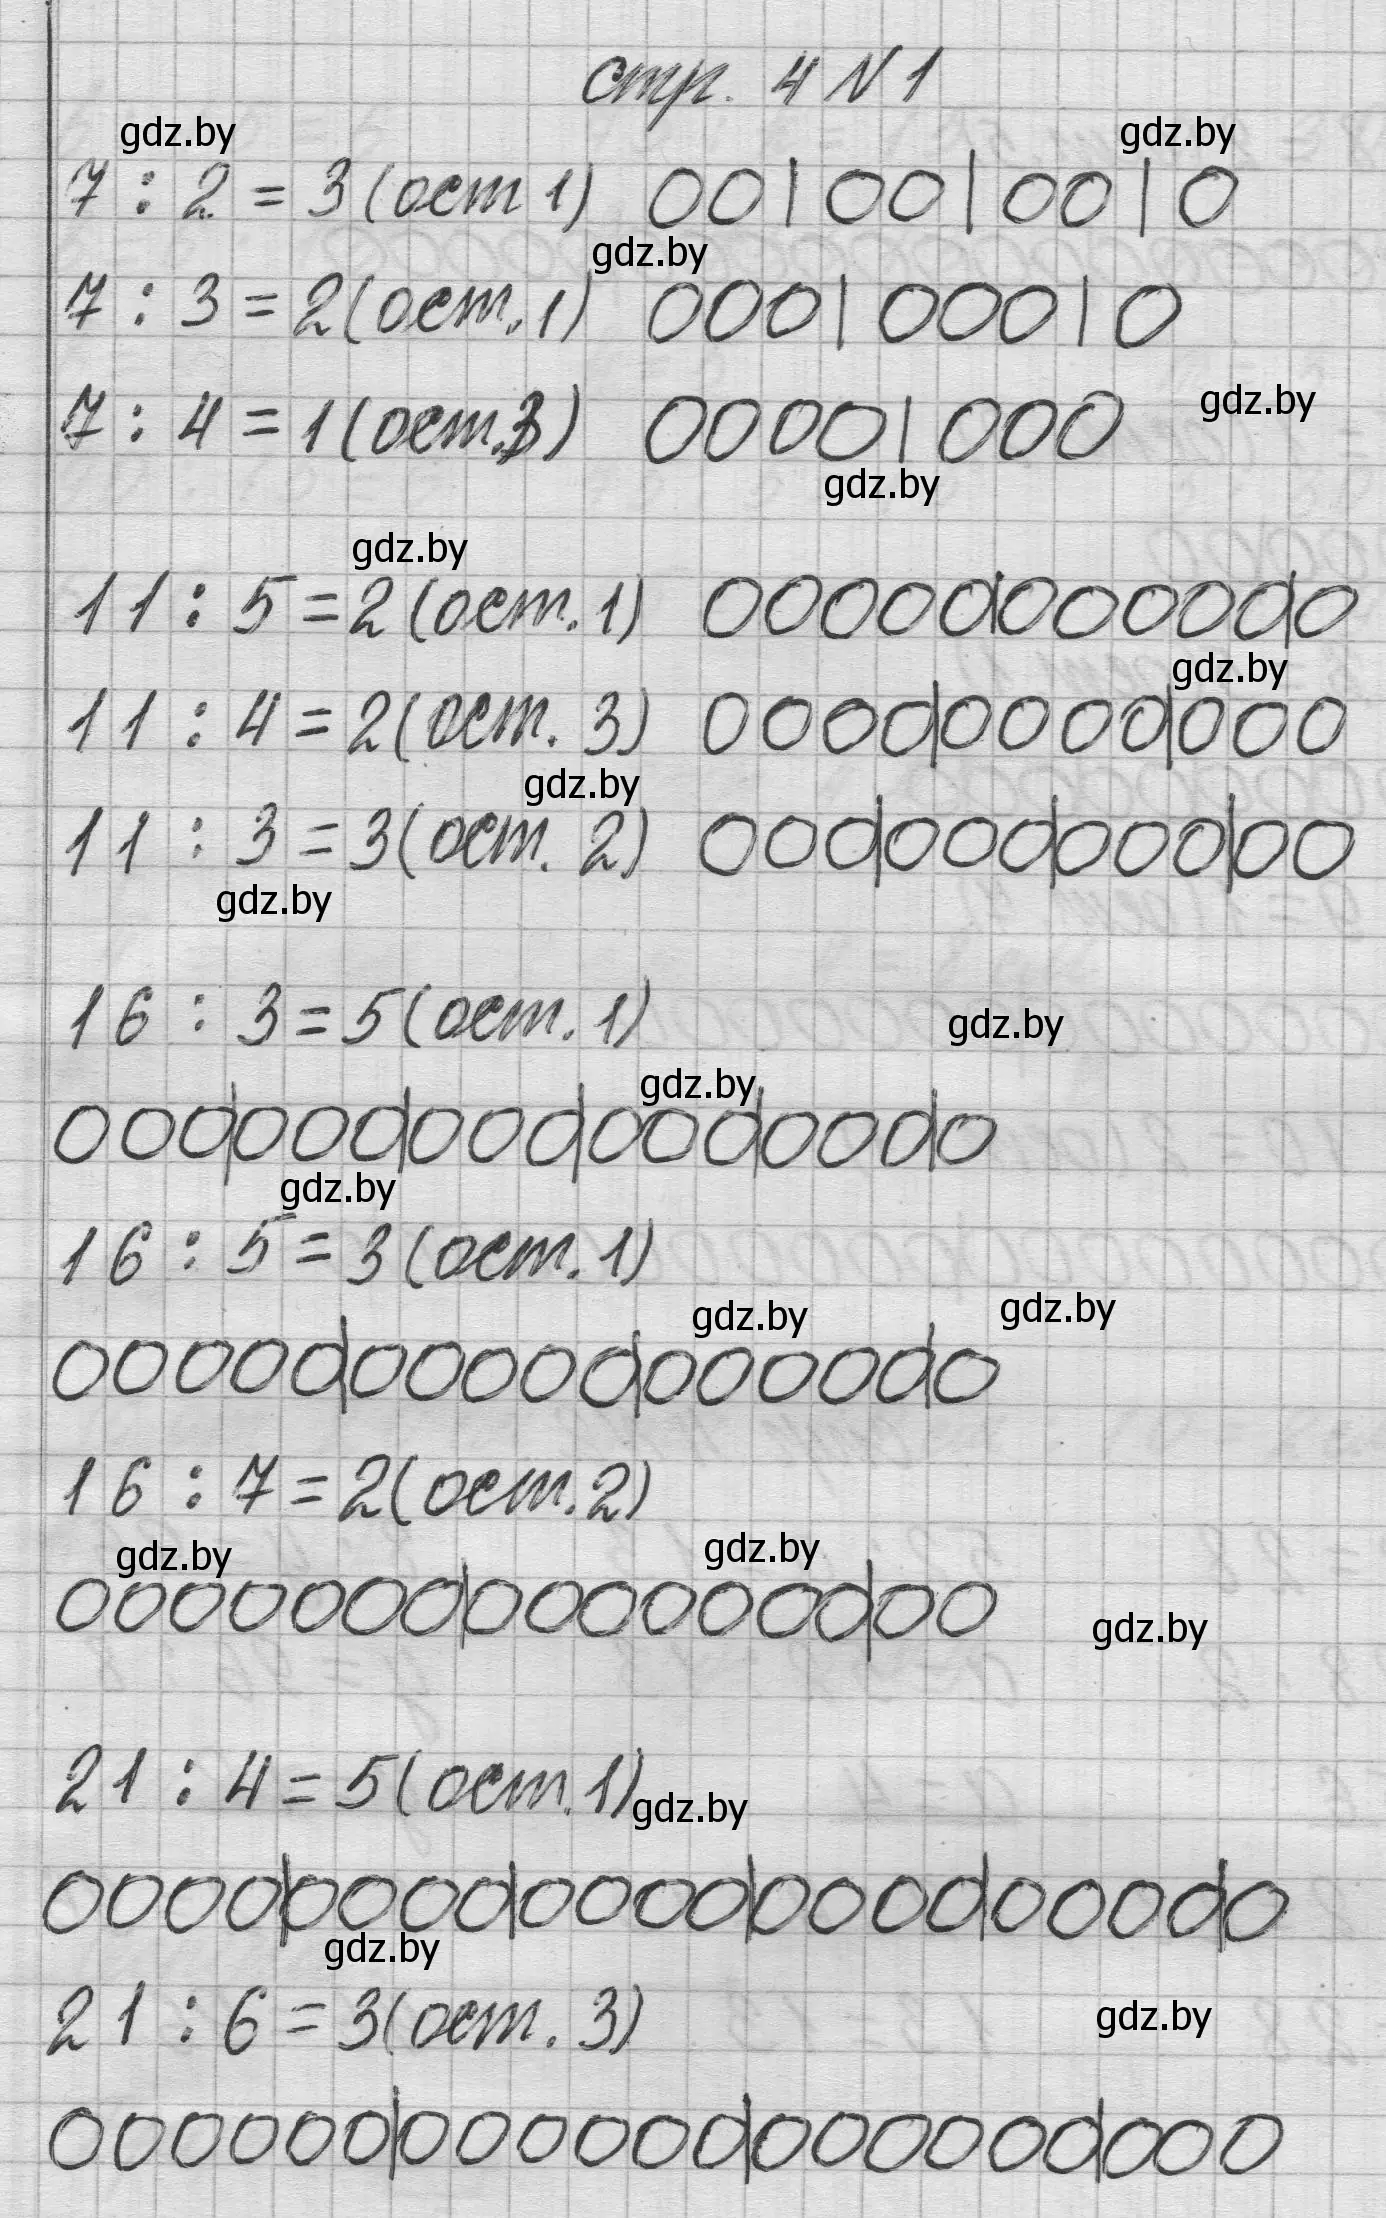 стр. 4 N 1
gdz.by gdz.by
7 : 2 = 3 (ост 1) 00|00|00|0
gdz.by
7 : 3 = 2 (ост. 1) 000|000|0
7 : 4 = 1 (ост. 3) 0000|000 gdz.by
gdz.by
gdz.by
11 : 5 = 2 (ост. 1) 00000|00000|0
gdz.by
11 : 4 = 2 (ост. 3) 0000|0000|000
gdz.by
11 : 3 = 3 (ост. 2) 000|000|000|00
gdz.by
16 : 3 = 5 (ост. 1) gdz.by
gdz.by
000|000|000|000|000|0
gdz.by
16 : 5 = 3 (ост. 1)
gdz.by gdz.by
00000|00000|00000|0
16 : 7 = 2 (ост. 2)
gdz.by gdz.by
0000000|0000000|00
gdz.by
21 : 4 = 5 (ост. 1) gdz.by
0000|0000|0000|0000|0000|0
gdz.by
21 : 6 = 3 (ост. 3) gdz.by
000000|000000|000000|000